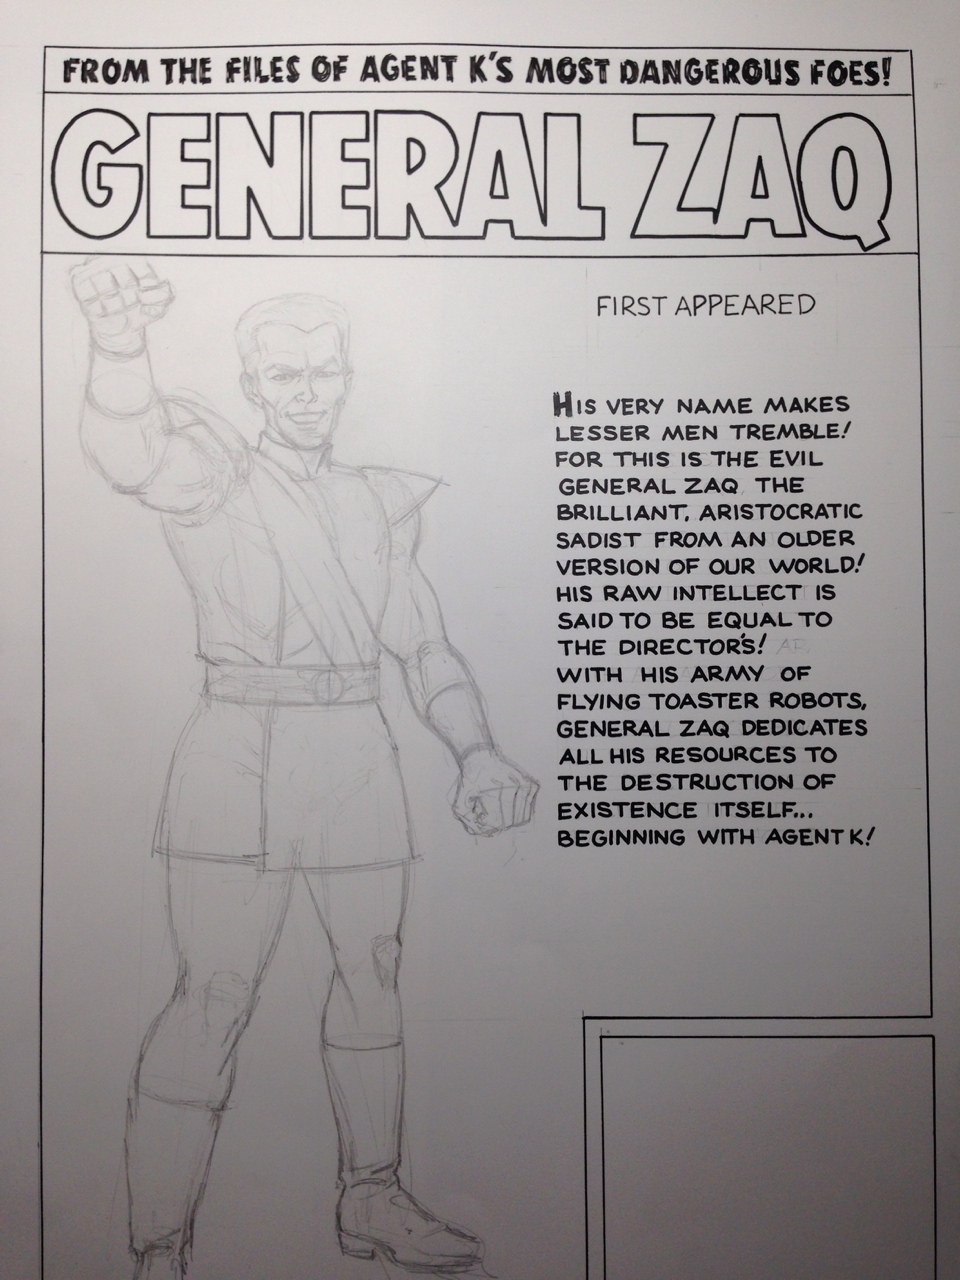 FROM THE FILES OF AGENT K'S MOST DANGEROUS FOES!
GENERAL ZAQ
FIRST APPEARED
HIS VERY NAME MAKES
LESSER MEN TREMBLE!
FOR THIS IS THE EVIL
GENERAL ZAQ, THE
BRILLIANT, ARISTOCRATIC
SADIST FROM AN OLDER
VERSION OF OUR WORLD!
HIS RAW INTELLECT IS
SAID TO BE EQUAL TO
THE DIRECTOR'S!
WITH HIS ARMY OF
FLYING TOASTER ROBOTS,
GENERAL ZAQ DEDICATES
ALL HIS RESOURCES TO
THE DESTRUCTION OF
EXISTENCE ITSELF...
BEGINNING WITH AGENT K!